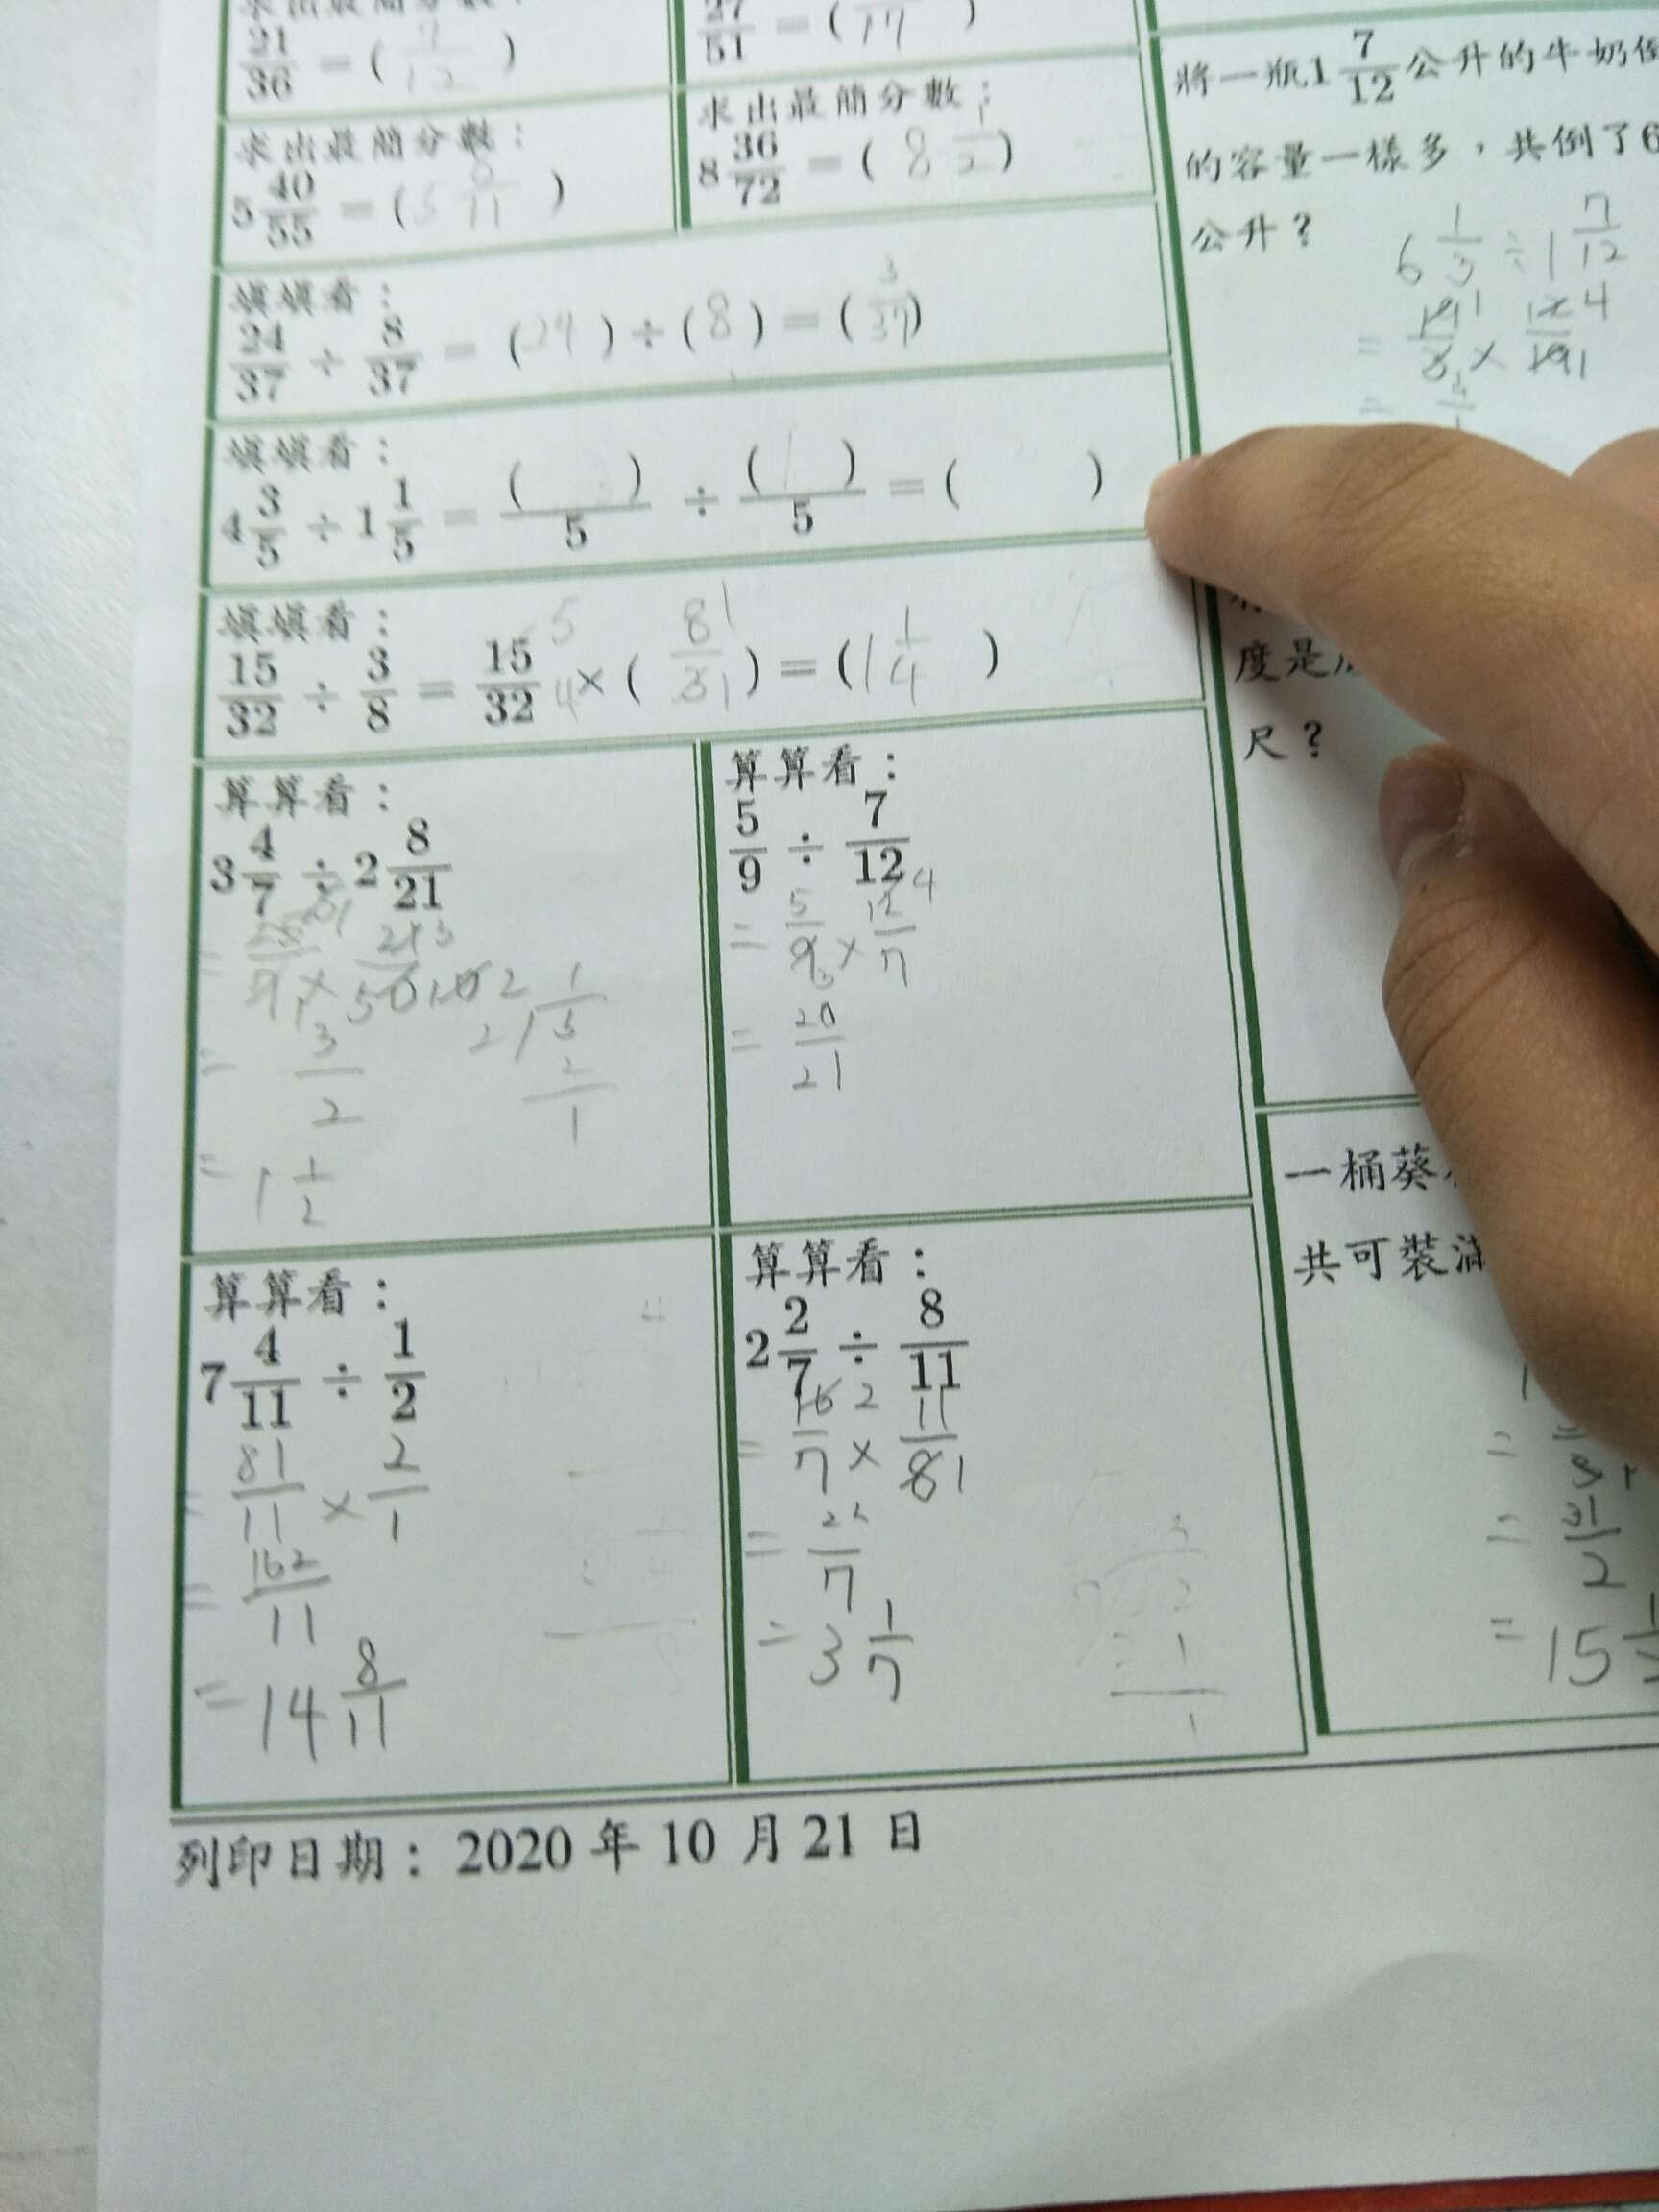 21/36 = ( 7/12 )
27/51 = ( /17 )
求出最簡分數：
5 40/55 = ( 5 8/11 )
求出最簡分數：
8 36/72 = ( 8 1/2 )
填填看：
24/37 ÷ 8/37 = (24) ÷ (8) = ( 3/37 )
填填看：
4 3/5 ÷ 1 1/5 = ( )/5 ÷ ( )/5 = ( )
填填看：
15/32 ÷ 3/8 = 15/32 5 4 × ( 8/3 1 1 ) = ( 1 1/4 )
算算看：
3 4/7 ÷ 2 8/21
= 3/2
= 1 1/2
算算看：
5/9 ÷ 7/12
= 5/9 3 × 12/7 4
= 20/21
算算看：
7 4/11 ÷ 1/2
= 81/11 × 2/1
= 162/11
= 14 8/11
算算看：
2 2/7 ÷ 8/11
= 16/7 2 × 11/8 1
= 22/7
= 3 1/7
將一瓶1 7/12 公升的牛奶
的容量一樣多，共倒了6
公升？
6 1/3 ÷ 1 7/12
度是
尺？
一桶葵
共可裝滿
= 31/2
= 15
列印日期： 2020 年 10 月 21 日